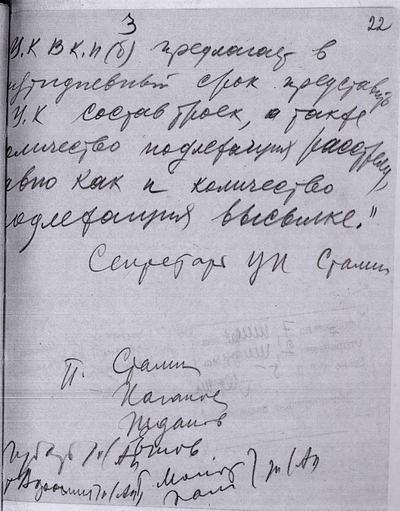 3
22
У.К ВК.П(б) предлагает в
пятидневный срок представить
У.К состав троек, а также
количество подлежащих расстрелу,
равно как и количество
подлежащих высылке."
Секретарь ЦК Сталин
П. Сталин
Каганов
Жданов
Ежов